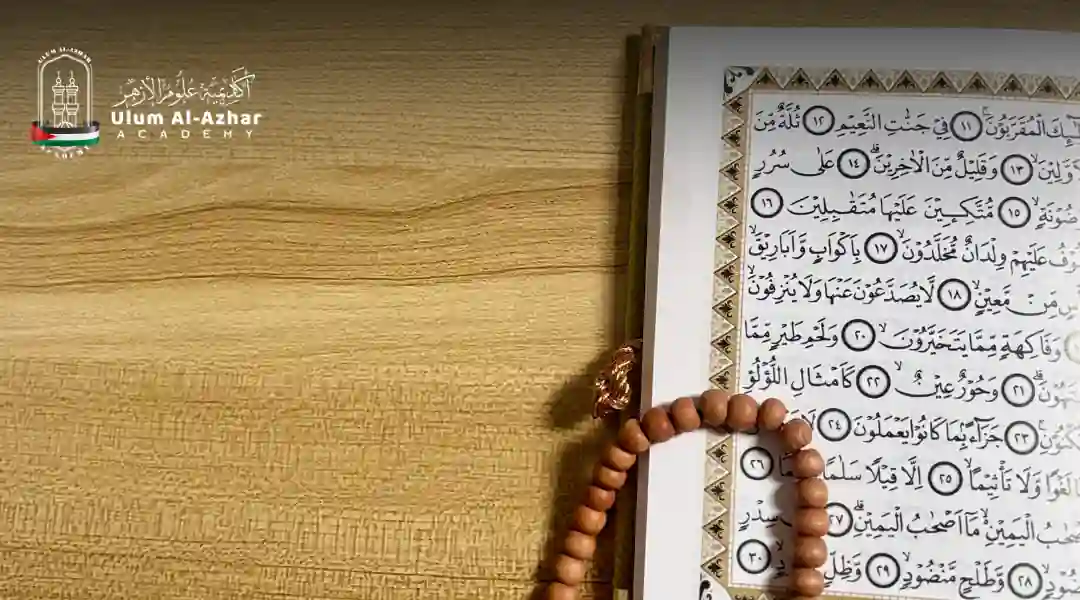 ULUM AL-AZHAR
ACADEMY
أكاديمية علوم الأزهر
Ulum Al-Azhar
ACADEMY
الْمُقَرَّبُوْنَ ۚ ١١ فِيْ جَنّٰتِ النَّعِيْمِ ١٢ ثُلَّةٌ مِّنَ
١٣ وَقَلِيْلٌ مِّنَ الْاٰخِرِيْنَ ۗ ١٤ عَلٰى سُرُرٍ
١٥ مُّتَّكِـِٕيْنَ عَلَيْهَا مُتَقٰبِلِيْنَ ١٦
عَلَيْهِمْ وِلْدَانٌ مُّخَلَّدُوْنَ ۙ ١٧ بِاَكْوَابٍ وَّاَبَارِيْقَ ۙ
مِّنْ مَّعِيْنٍ ۙ ١٨ لَّا يُصَدَّعُوْنَ عَنْهَا وَلَا يُنْزِفُوْنَ ۙ
وَفَاكِهَةٍ مِّمَّا يَتَخَيَّرُوْنَ ۙ ٢٠ وَلَحْمِ طَيْرٍ مِّمَّا
٢١ وَحُوْرٌ عِيْنٌ ۙ ٢٢ كَاَمْثَالِ اللُّؤْلُؤِ
٢٣ جَزَاۤءًۢ بِمَا كَانُوْا يَعْمَلُوْنَ ٢٤ لَا
لَغْوًا وَّلَا تَأْثِيْمًا ۙ ٢٥ اِلَّا قِيْلًا سَلٰمًا ٢٦
الْيَمِيْنِ ەۙ مَآ اَصْحٰبُ الْيَمِيْنِ ۗ ٢٧ سِدْرٍ
٢٨ وَّطَلْحٍ مَّنْضُوْدٍ ۙ ٢٩ وَّظِلٍّ ٣٠